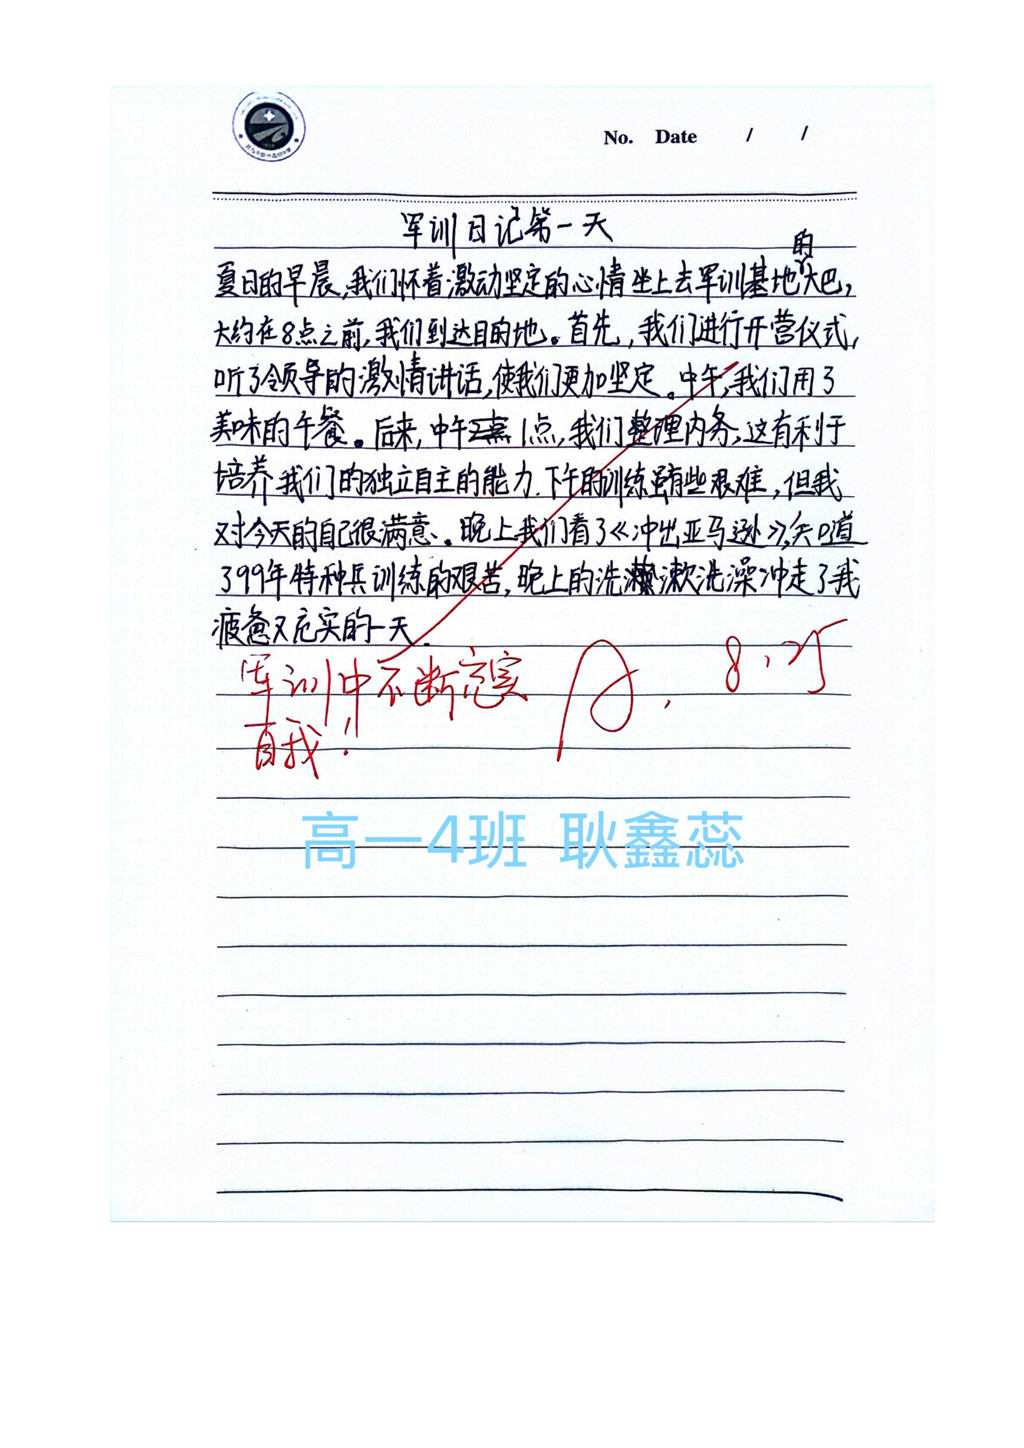 No. Date / /
军训日记第一天
夏日的早晨,我们怀着激动坚定的心情坐上去军训基地的大巴,
大约在8点之前,我们到达目的地。首先,我们进行开营仪式,
听了领导的激情讲话,使我们更加坚定。中午,我们用了
美味的午餐。后来,中午1点,我们整理内务,这有利于
培养我们的独立自主的能力.下午的训练虽有些艰难,但我
对今天的自己很满意。晚上我们看了《冲出亚马逊》,知道
了99年特种兵训练的艰苦,晚上的洗漱洗澡冲走了我
疲惫又充实的一天.
军训中不断充实
自我!
A. 8.25
高一4班 耿鑫蕊